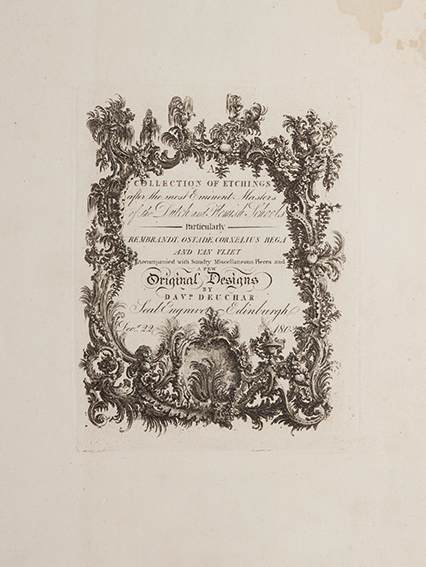 A
COLLECTION OF ETCHINGS
after the most Eminent Masters
of the Dutch and Flemish Schools
Particularly
REMBRANDT, OSTADE, CORNELIUS BEGA
AND VAN VLIET
Accompanied with Sundry Miscellaneous Pieces and
A FEW
Original Designs
BY
DAVD. DEUCHAR
Seal Engraver Edinburgh
Decr. 22